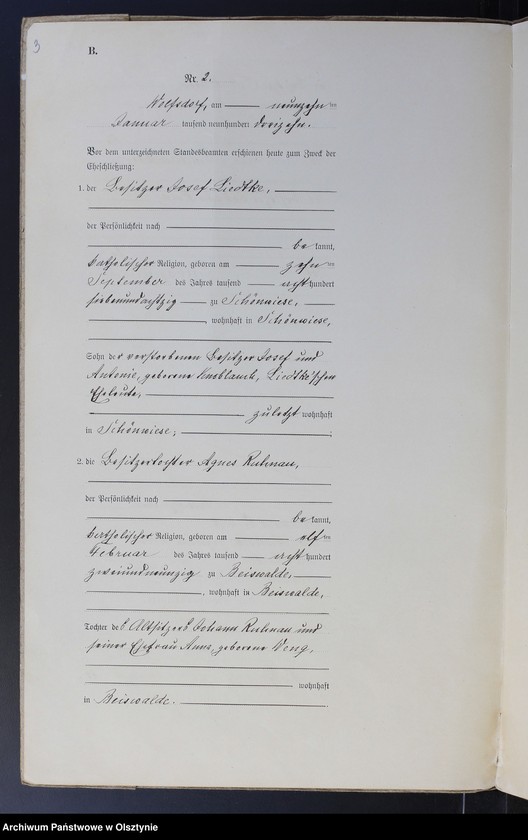 3
B.
Nr. 2.
Wolfsdorf, am neunzehnten
Januar tausend neunhundert dreizehn.
Vor dem unterzeichneten Standesbeamten erschienen heute zum Zweck der
Eheschließung:
1. der Besitzer Josef Liedtke,
der Persönlichkeit nach
bekannt,
katholischer Religion, geboren am zehnten
September des Jahres tausend achthundert
siebenundachtzig zu Schönwiese,
, wohnhaft in Schönwiese,
Sohn der verstorbenen Besitzer Josef und
Antonie, geborene Knoblauch, Liedtke'schen
Eheleute,
zuletzt wohnhaft
in Schönwiese;
2. die Besitzertochter Agnes Ruhnau,
der Persönlichkeit nach
bekannt,
katholischer Religion, geboren am elften
Februar des Jahres tausend achthundert
zweiundneunzig zu Beiswalde,
, wohnhaft in Beiswalde,
Tochter des Altsitzers Johann Ruhnau und
seiner Ehefrau Anna, geborene Weng,
wohnhaft
in Beiswalde.
Archiwum Państwowe w Olsztynie